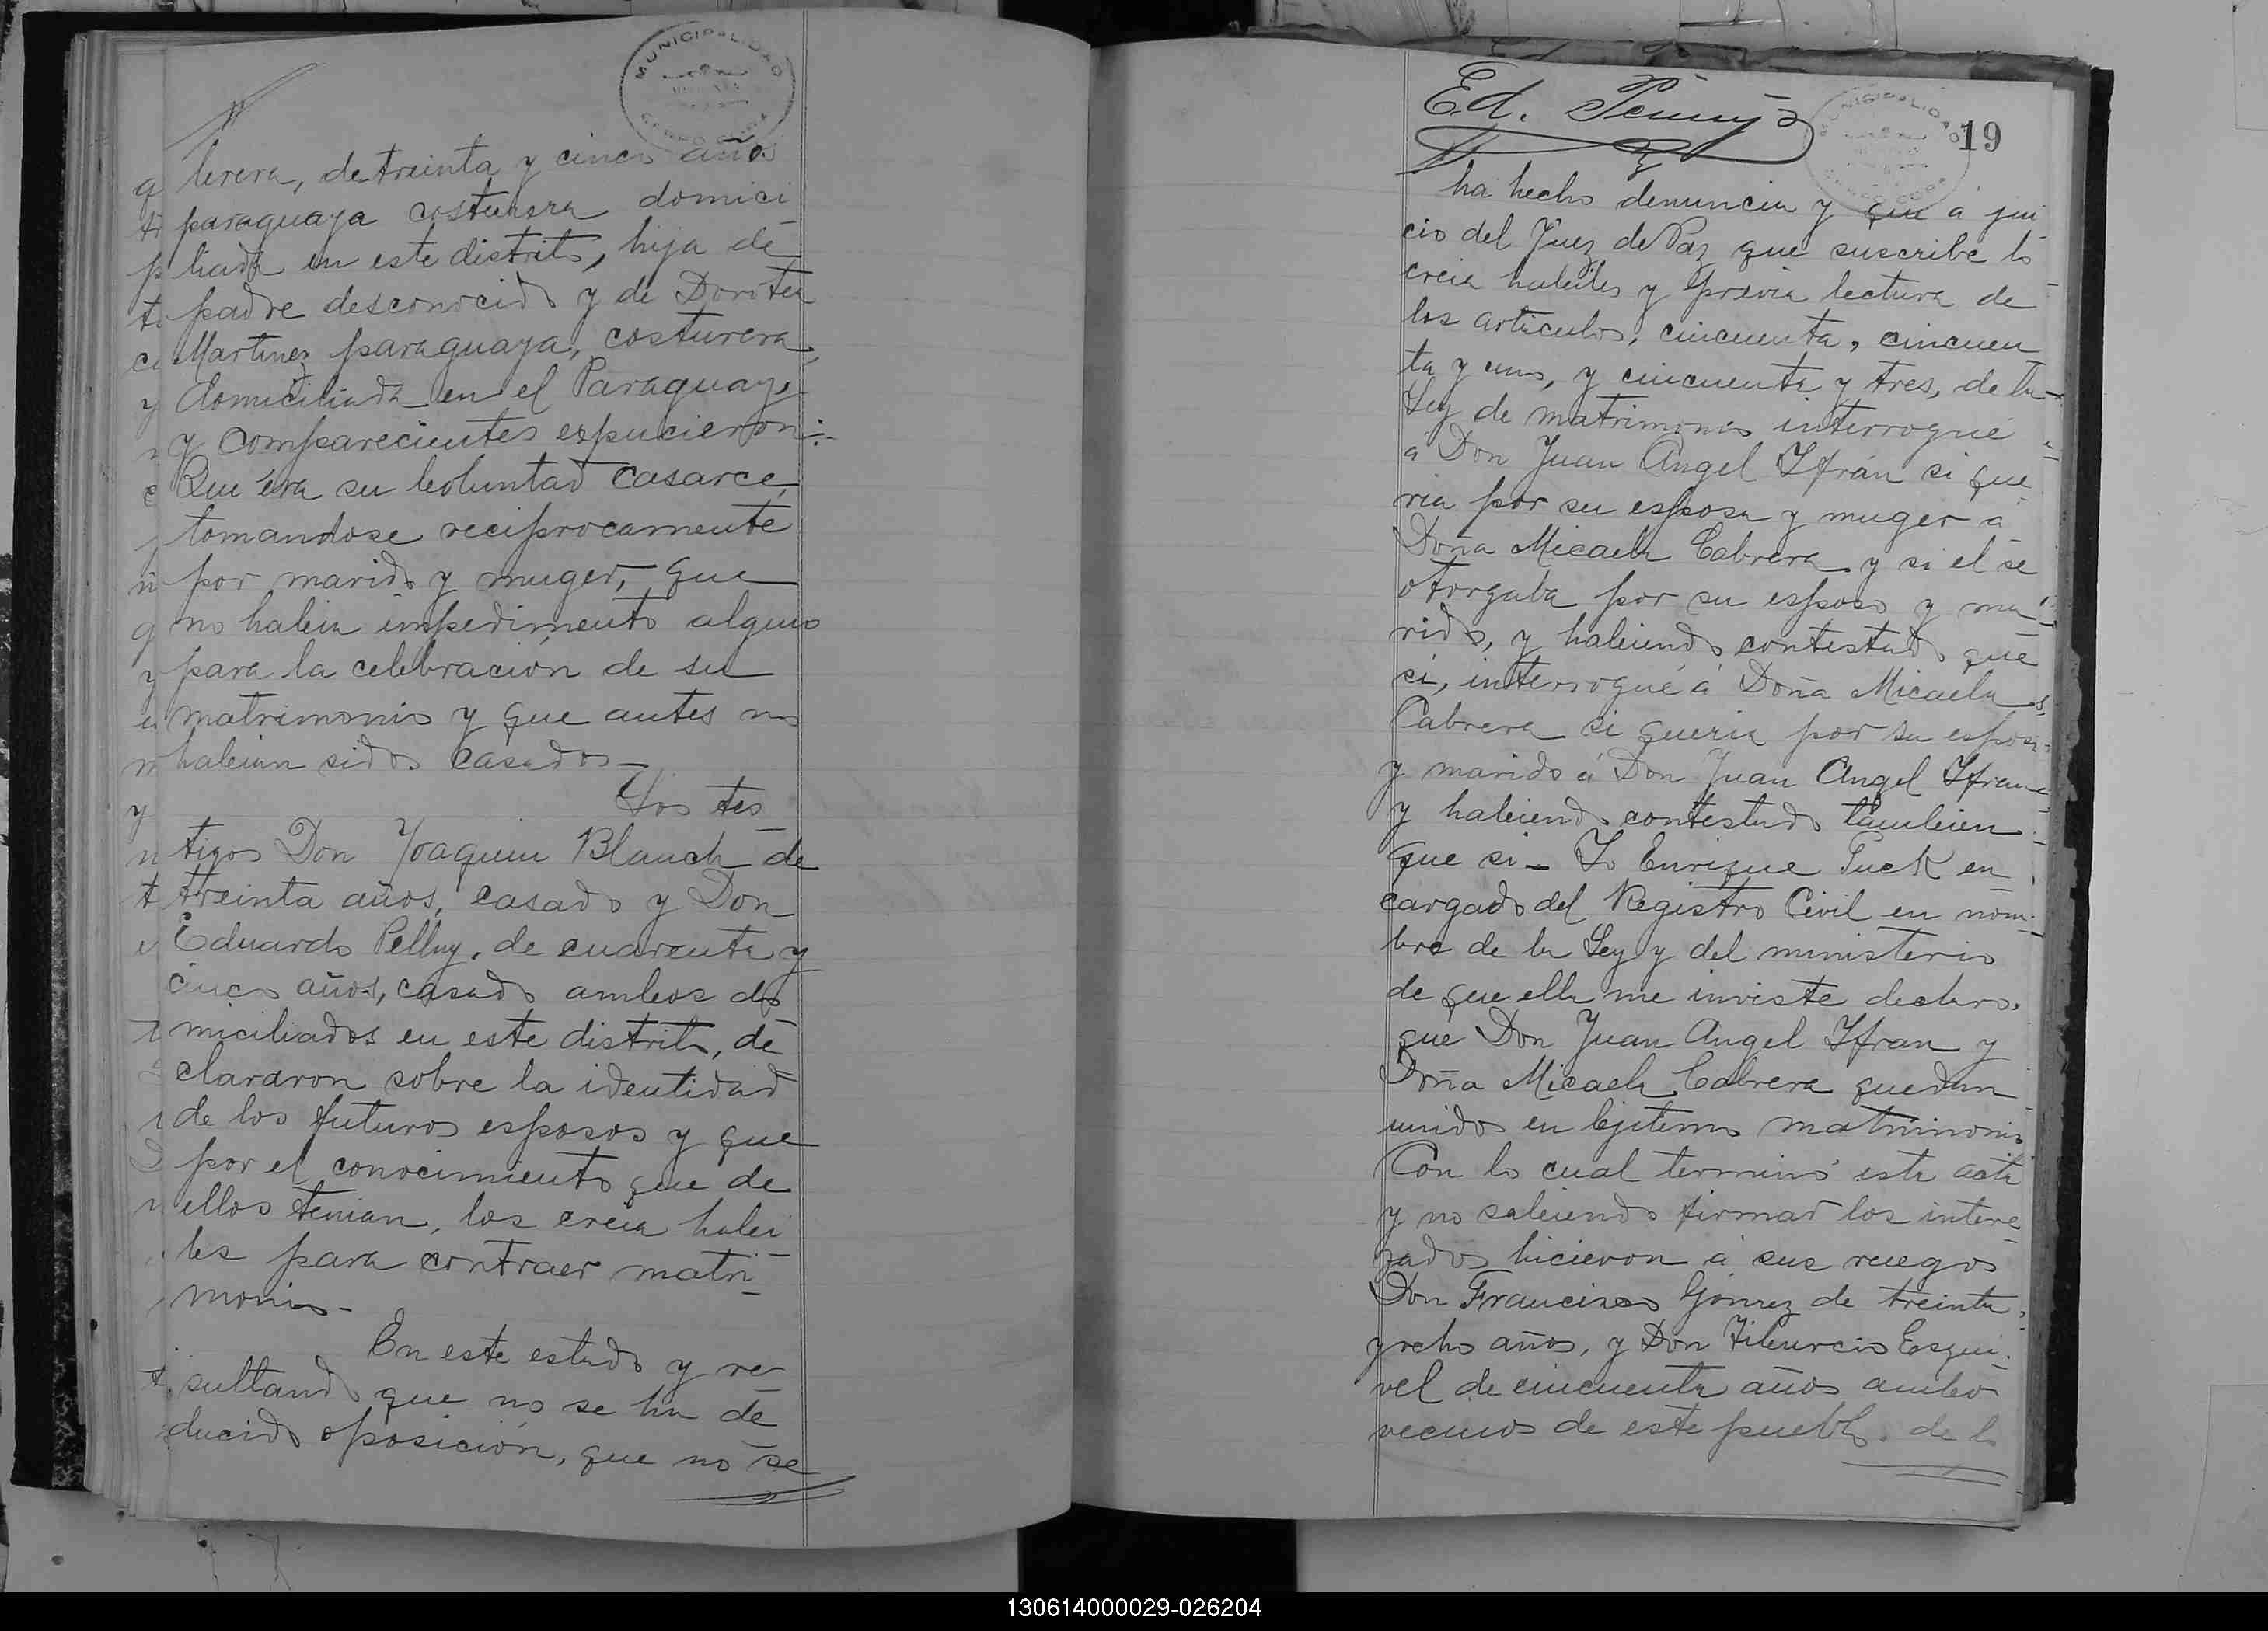 MUNICIPALIDAD
lterera, de treinta y cinco años
paraguaya costurera domici
liada en este distrito, hija de
padre desconocido y de Dorotea
Martinez paraguaya, costurera,
domiciliada en el Paraguay,
y comparecientes espucieron:-
Que éra su boluntad casarce,
tomandose reciprocamente
por marido y muger, que
no habia impedimento alguno
para la celebración de su
matrimonio y que antes no
habian sidos casados-
Los tes
tigos Don Joaquin Blanch de
treinta años, casado y Don
Eduardo Pelluy, de cuarenta y
cinco años, casado ambos do
miciliados en este distrito, de
clararon sobre la identidad
de los futuros esposos y que
por el conocimiento que de
ellos tenian, los creia habi
les para contraer matri
monio-
En este estado y re
sultando que no se ha de
ducido oposición, que no se
Ed.
MUNICIPALIDAD
19
ha hecho denuncia y que á jui
cio del Juez de Paz que suscribe lo
creia habiles y previa lectura de
los articulos, cincuenta, cincuen
ta y uno, y cincuenta y tres, de la
Ley de matrimonio interrogué
á Don Juan Angel Ifrán si que
ria por su esposa y muger á
Doña Micaela Cabrera y si el se
otorgaba por su esposo y ma
rido, y habiendo contestado que
si, interrogué á Doña Micaela
Cabrera si queria por su esposo
y marido á Don Juan Angel Ifran
y habiendo contestado tambien
que si- Yo Enrique Tuck en
cargado del Registro Civil en nom
bre de la Ley y del ministerio
de que ella me inviste declaro.
que Don Juan Angel Ifran y
Doña Micaela Cabrera quedan
unidos en lejitimo matrimonio
Con lo cual terminó esta acta
y no sabiendo firmar los intere
zados hicieron á sus ruegos
Don Francisco Gómez de treinta
y ocho años, y Don Tiburcio Esqui
vel de cincuenta años ambos
vecinos de este pueblo. de lo
130614000029-026204